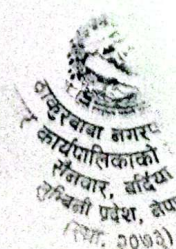 ठाकुरबाबा नगरप
र कार्यपालिकाको
सैनवार, बर्दिया
लुम्बिनी प्रदेश, नेपा
(स्था. २०७३)